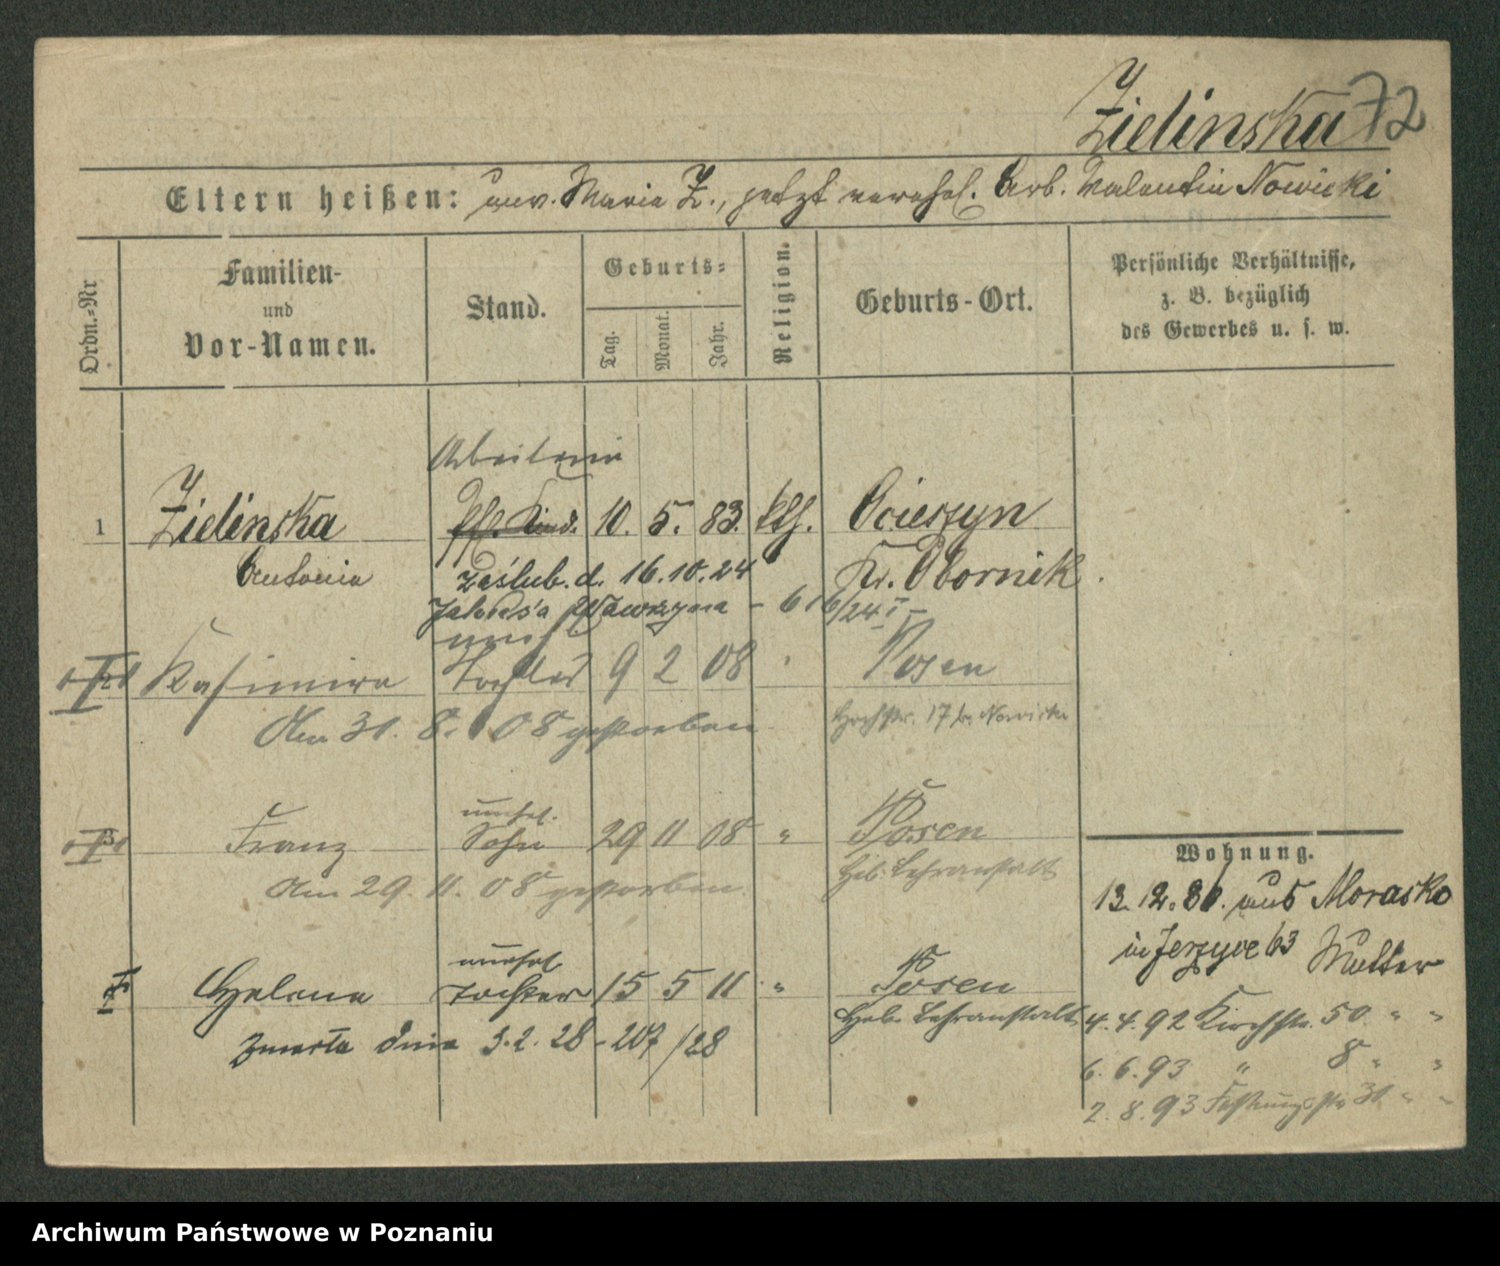 Zielinska 72
Eltern heißen: unv. Maria Z., jetzt verehel. Arb. Valentin Nowicki
Ordn.=Nr
Familien-
und
Vor-Namen.
Stand.
Geburts=
Tag.
Monat.
Jahr.
Religion.
Geburts-Ort.
Persönliche Verhältnisse,
z. B. bezüglich
des Gewerbes u. s. w.
Arbeiterin
1 Zielinska Pfl. Kind. 10. 5. 83. kth. Ocieszyn
Antonie Kr. Obornik.
zaślub. d. 16.10.24
Wawrzyna - 616/24 I
unehel.
Kasimira Tochter 9 2 08 " Posen
Am 31. 8. 08 gestorben
17 b. Nowicka
unehel.
Franz Sohn 29 11 08 " Posen
Am 29. 11. 08 gestorben
Heb. Lehranstalt
unehel.
Helene Tochter 15 5 11 " Posen
Heb. Lehranstalt
Zmarła dnia 3.2.28 - 207/28
Wohnung.
13. 12. 80. aus Morasko
in Jerzyce 63 Mutter
4. 4. 92 Kirchstr. 50 " "
6. 6. 93 " 8 " "
2. 8. 93 Festungsstr 31 " "
Archiwum Państwowe w Poznaniu